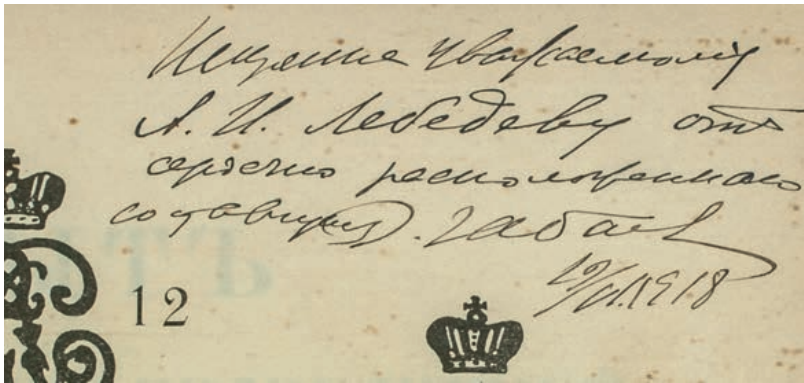 Искренне уважаемому
А. И. Лебедеву отъ
сердечно расположеннаго
составителя. Габаев
19/VI.1918
12